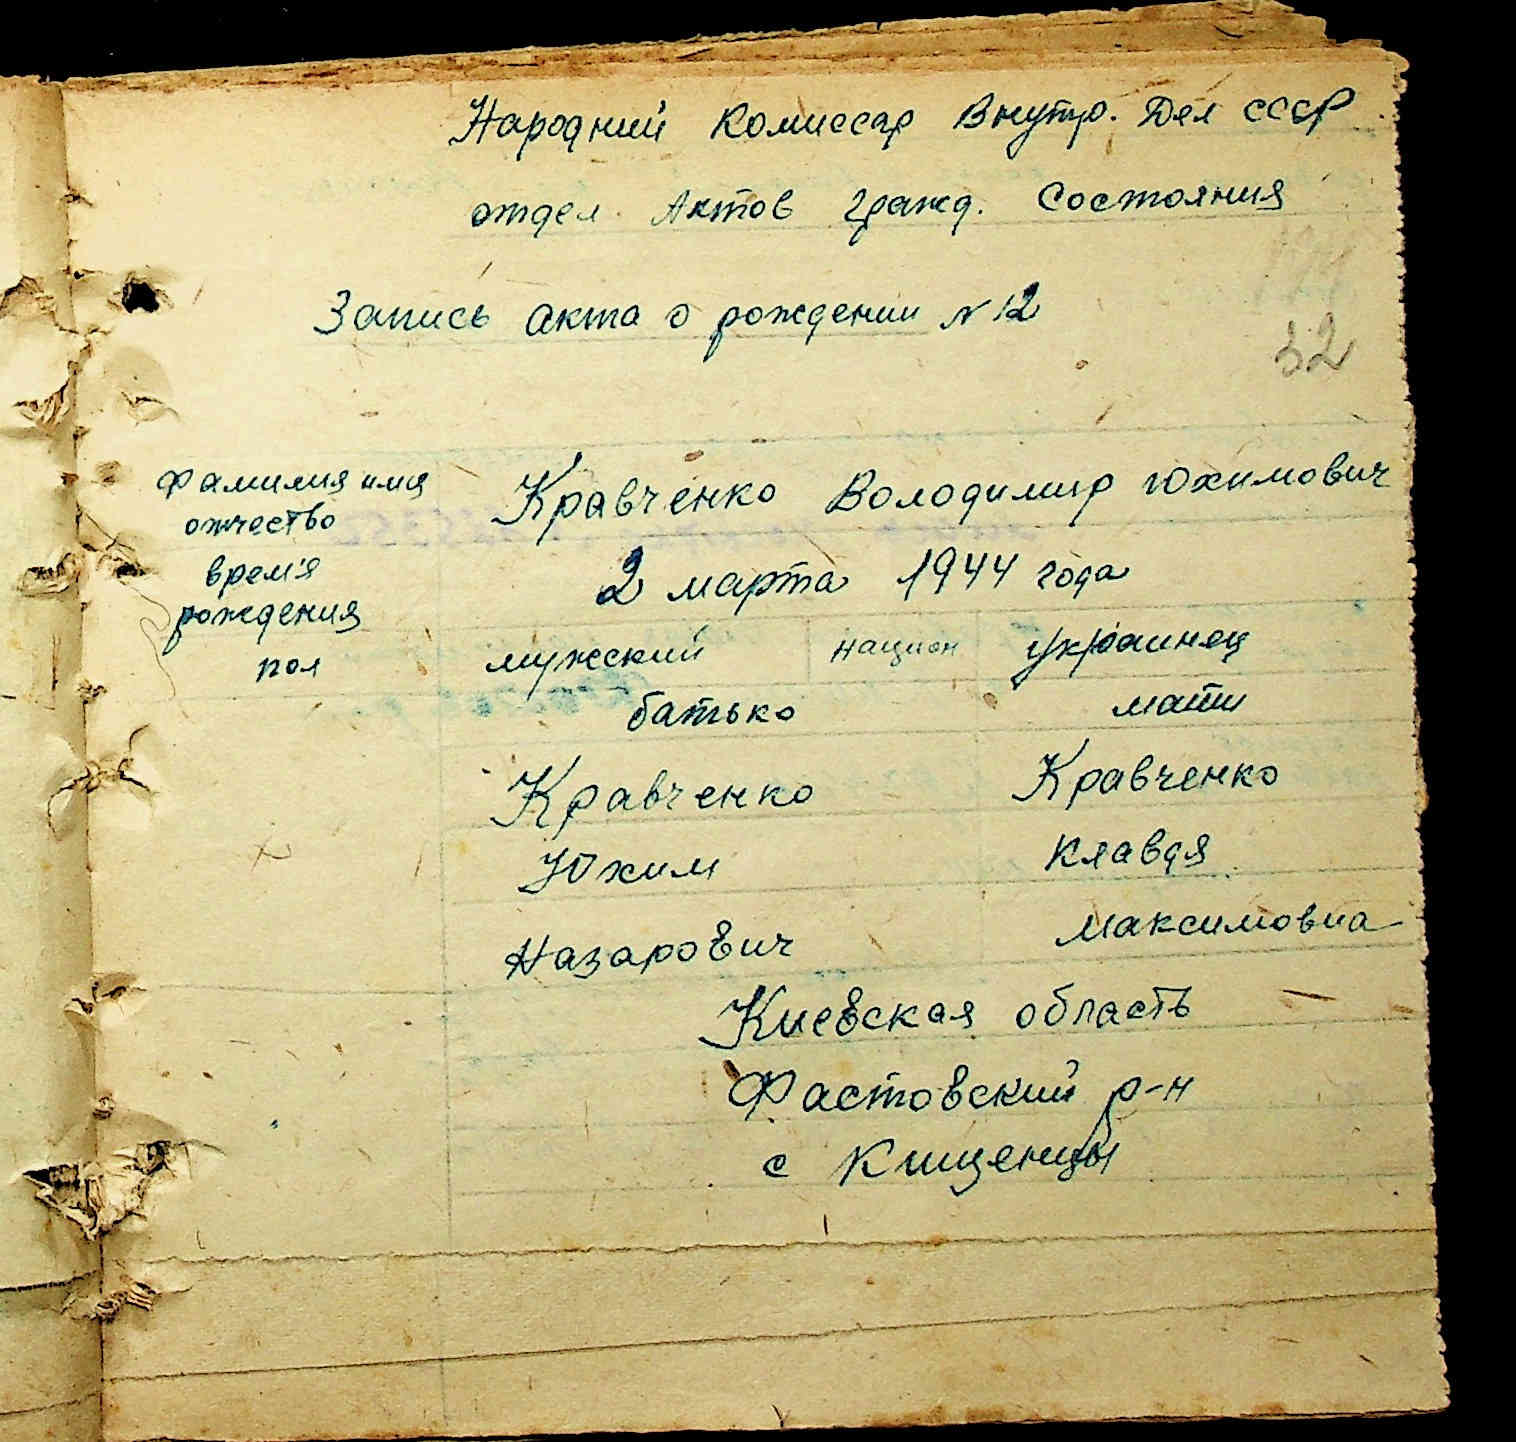 Народний Комиссар Внутр. Дел СССР
отдел Актов гражд. Состояния
Запись акта о рождении N 12
32
Фамилия имя
отчество
Кравченко Володимир Юхимович
время
рождения
2 марта 1944 года
пол
мужский национ украинец
батько мати
Кравченко Кравченко
Юхим Клавдя
Назарович Максимовна
Киевская область
Фастовский р-н
с Кищенцы